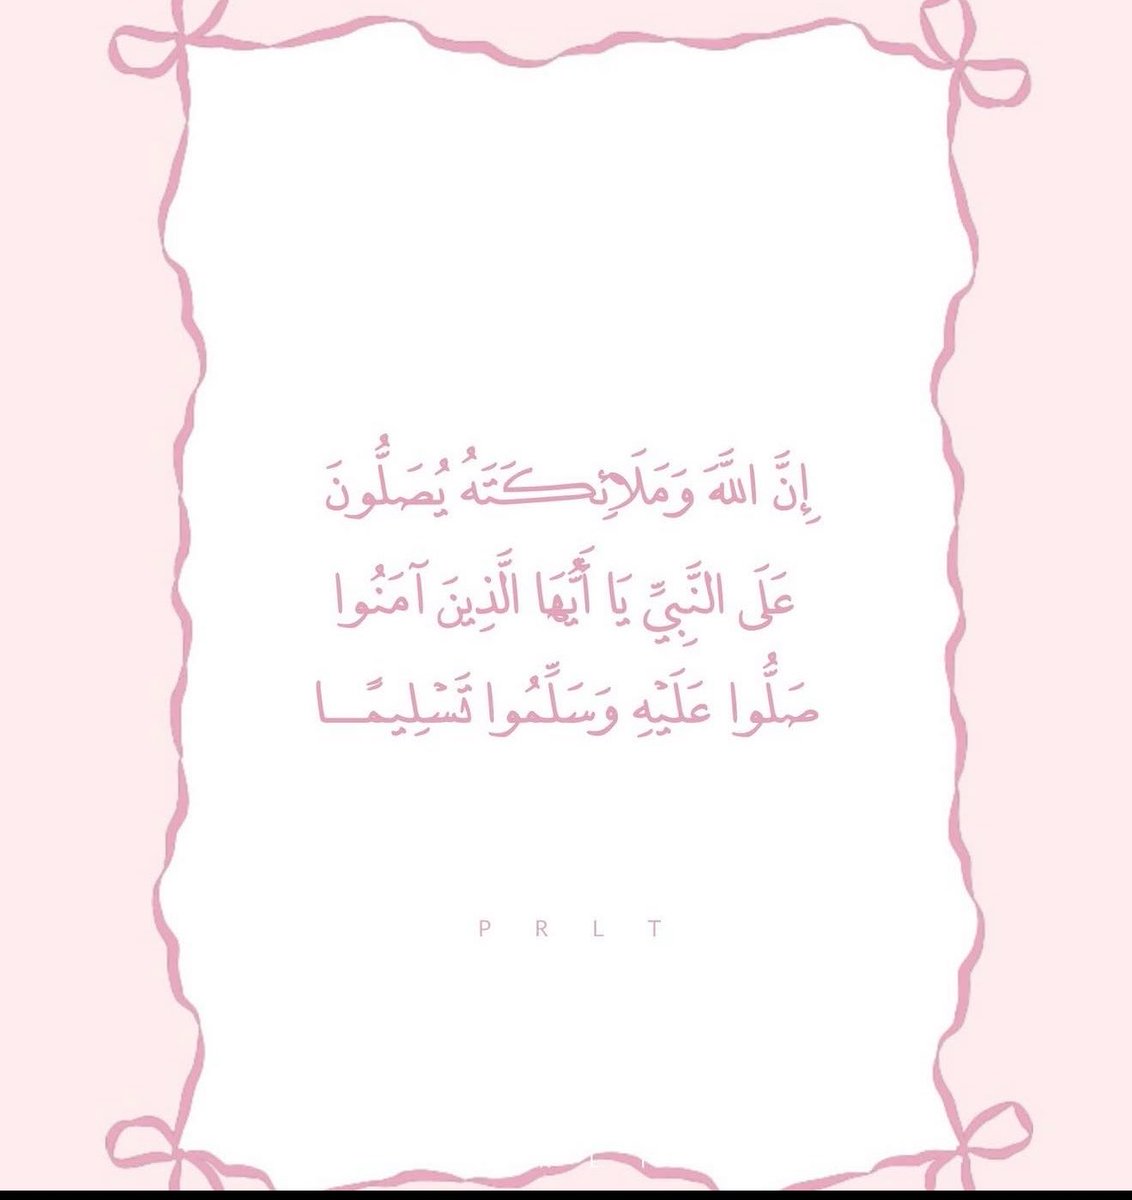 إِنَّ اللَّهَ وَمَلَائِكَتَهُ يُصَلُّونَ
عَلَى النَّبِيِّ يَا أَيُّهَا الَّذِينَ آمَنُوا
صَلُّوا عَلَيْهِ وَسَلِّمُوا تَسْلِيمًا
P R L T